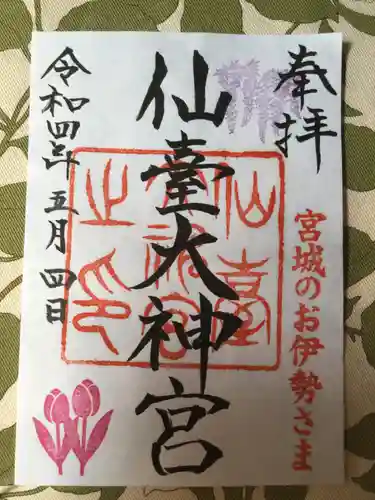 奉拝
宮城のお伊勢さま
仙臺大神宮
令和四年五月四日